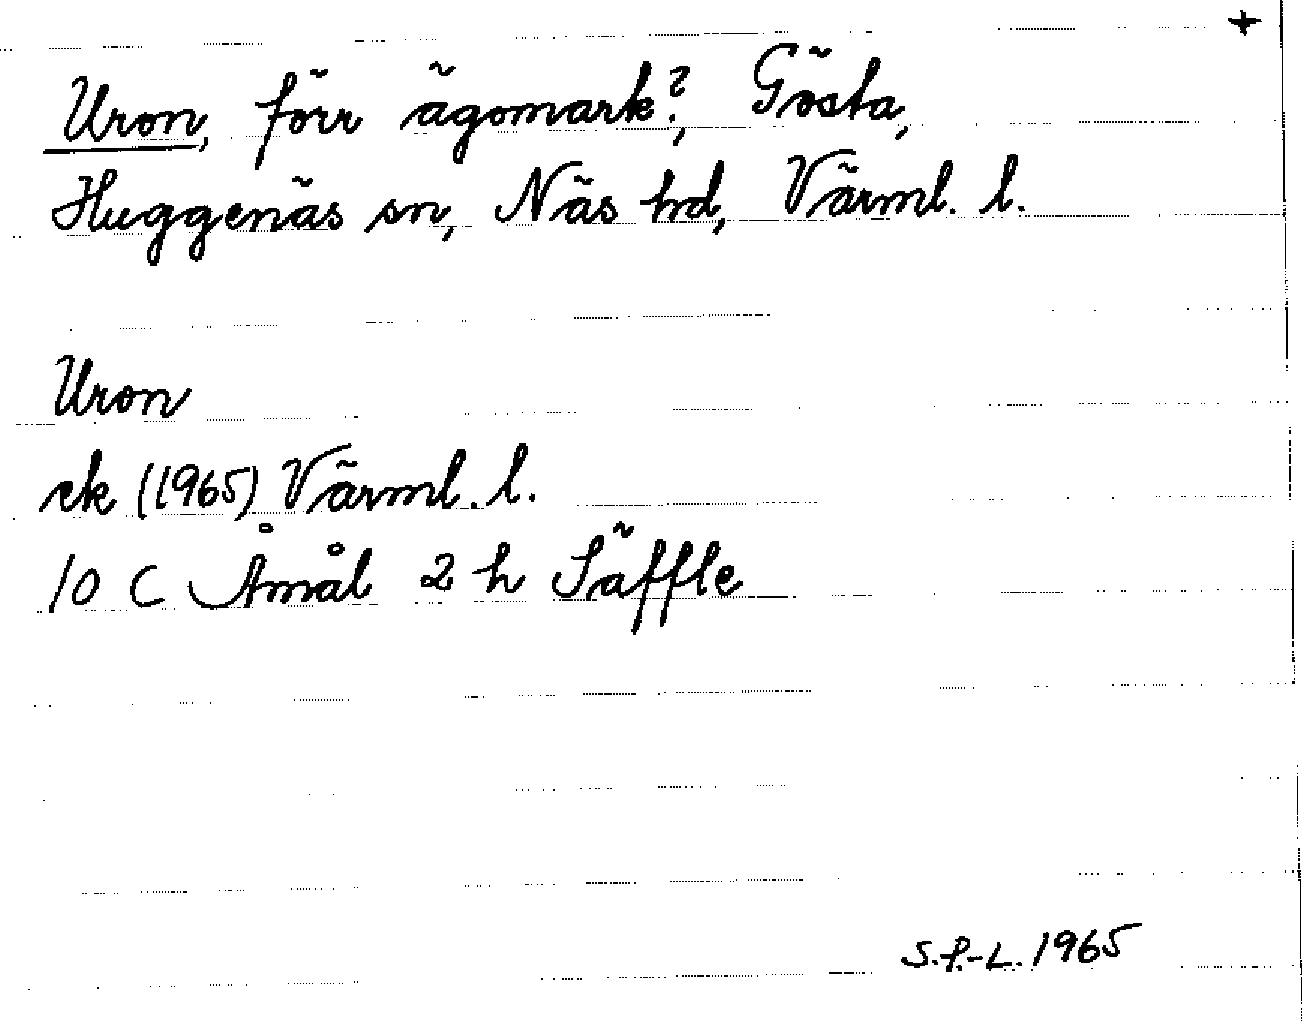 +
Uron, förr ägomark?, Gösta,
Huggenäs sn, Näs hd, Värml. l.
Uron
ek (1965) Värml. l.
10 C Åmål 2 h Säffle
S.P.-L. 1965